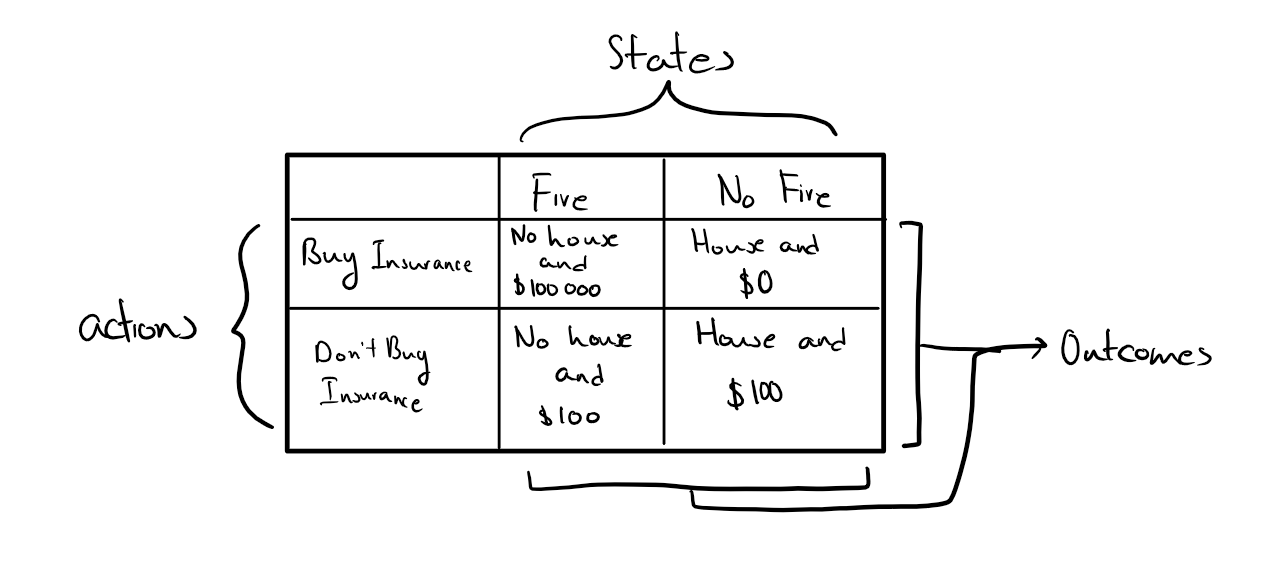 States
Fire
No Fire
Buy Insurance
No house
and
$100 000
House and
$0
actions
Don't Buy
Insurance
No house
and
$100
House and
$100
Outcomes